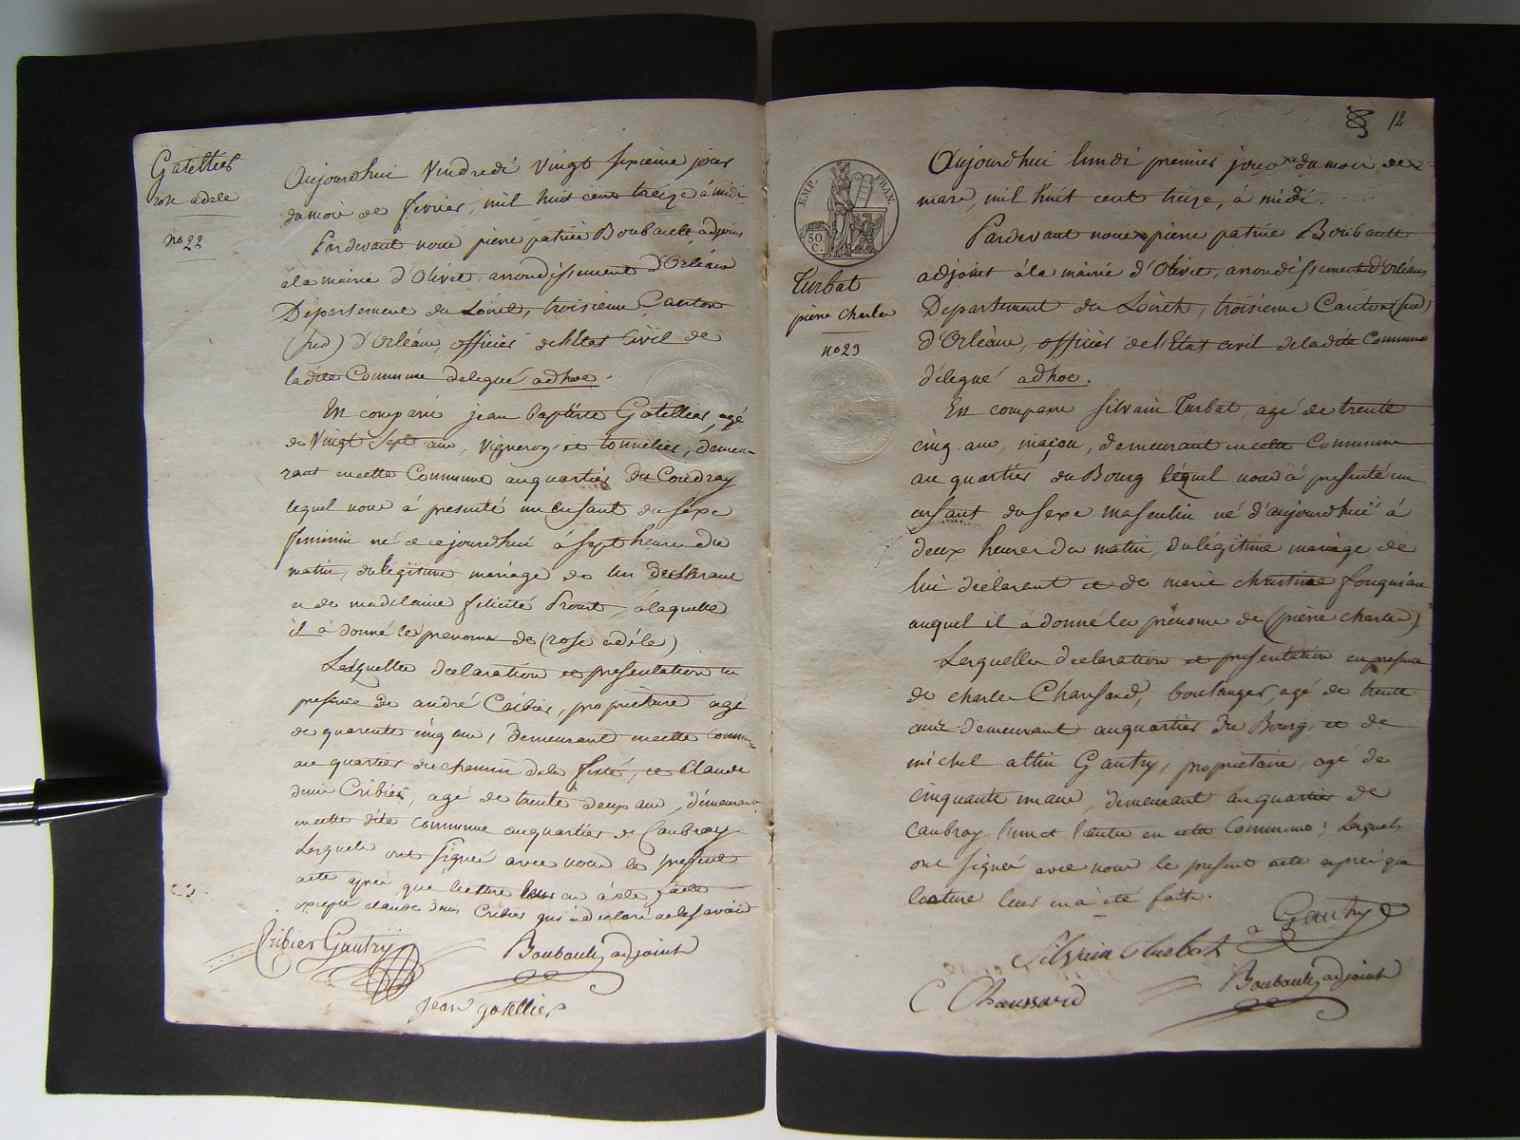 Gatellier
rose adele
no 22
Aujourdhui Vendredi vingt sixieme jour
du mois de fevrier, mil huit cent treize à midi
Pardevant nous pierre patrice Boubault adjoint
à la mairie d'Olivet arrondissement d'Orléans
Département du Loiret, troisieme Canton
(sud) d'Orléans, officier de l'Etat Civil de
ladite Commune delegué adhoc.
Est comparu jean baptiste Gatellier, agé
de Vingt Sept ans, Vigneron et tonnelier, demeu-
rant en cette Commune au quartier du Coudray
lequel nous à presenté un Enfant du sexe
feminin né de cejourdhui à sept heures du
matin, du légitime mariage de lui declarant
et de madelaine felicité Proust, à laquelle
il à donné les prenoms de (rose adéle)
Lesquelles declaration et presentation en
presence de andré Cribier, proprietaire agé
de quarente cinq ans, demeurant en cette commune
au quartier du chemin de la ferté, et Claude
denis Cribier, agé de trente deux ans, demeurant
en cette dite commune au quartier de Caubray
Lesquels ont signé avec nous le present
acte aprés que lecture leur en à été faite
excepté claude denis Cribier qui à declaré ne le savoir
Cribier Gautry
Boubault adjoint
jean gatellier
12
EMP. FRAN.
50 C.
Turbat
pierre charles
no 23
Aujourdhui lundi premier jour du mois de
mars, mil huit cent treize, à midi.
Pardevant nous pierre patrice Boubault
adjoint à la mairie d'Olivet, arrondissement d'Orléans
Departement du Loiret, troisieme Canton (sud)
d'Orléans, officier de l'Etat civil de ladite Commune
délegué adhoc.
Est comparu Silvain Turbat, agé de trente
cinq ans, maçon, demeurant en cette Commune
au quartier du Bourg lequel nous à presenté un
enfant du sexe masculin né d'aujourdhui à
deux heures du matin, du légitime mariage de
lui déclarant et de marie christine
auquel il a donné les prénoms de (pierre charles)
Lesquelles declaration et presentation en presence
de charles Chaussard, boulanger, agé de trente
ans demeurant au quartier du Bourg, et de
michel Gautry, proprietaire, agé de
cinquante un ans, demeurant au quartier de
Caubray l'un et l'autre en cette Commune; Lesquels
ont signé avec nous le present acte aprés que
lecture leur en à été faite.
Gautry
Silvain thurbat
Boubault adjoint
C Chaussard